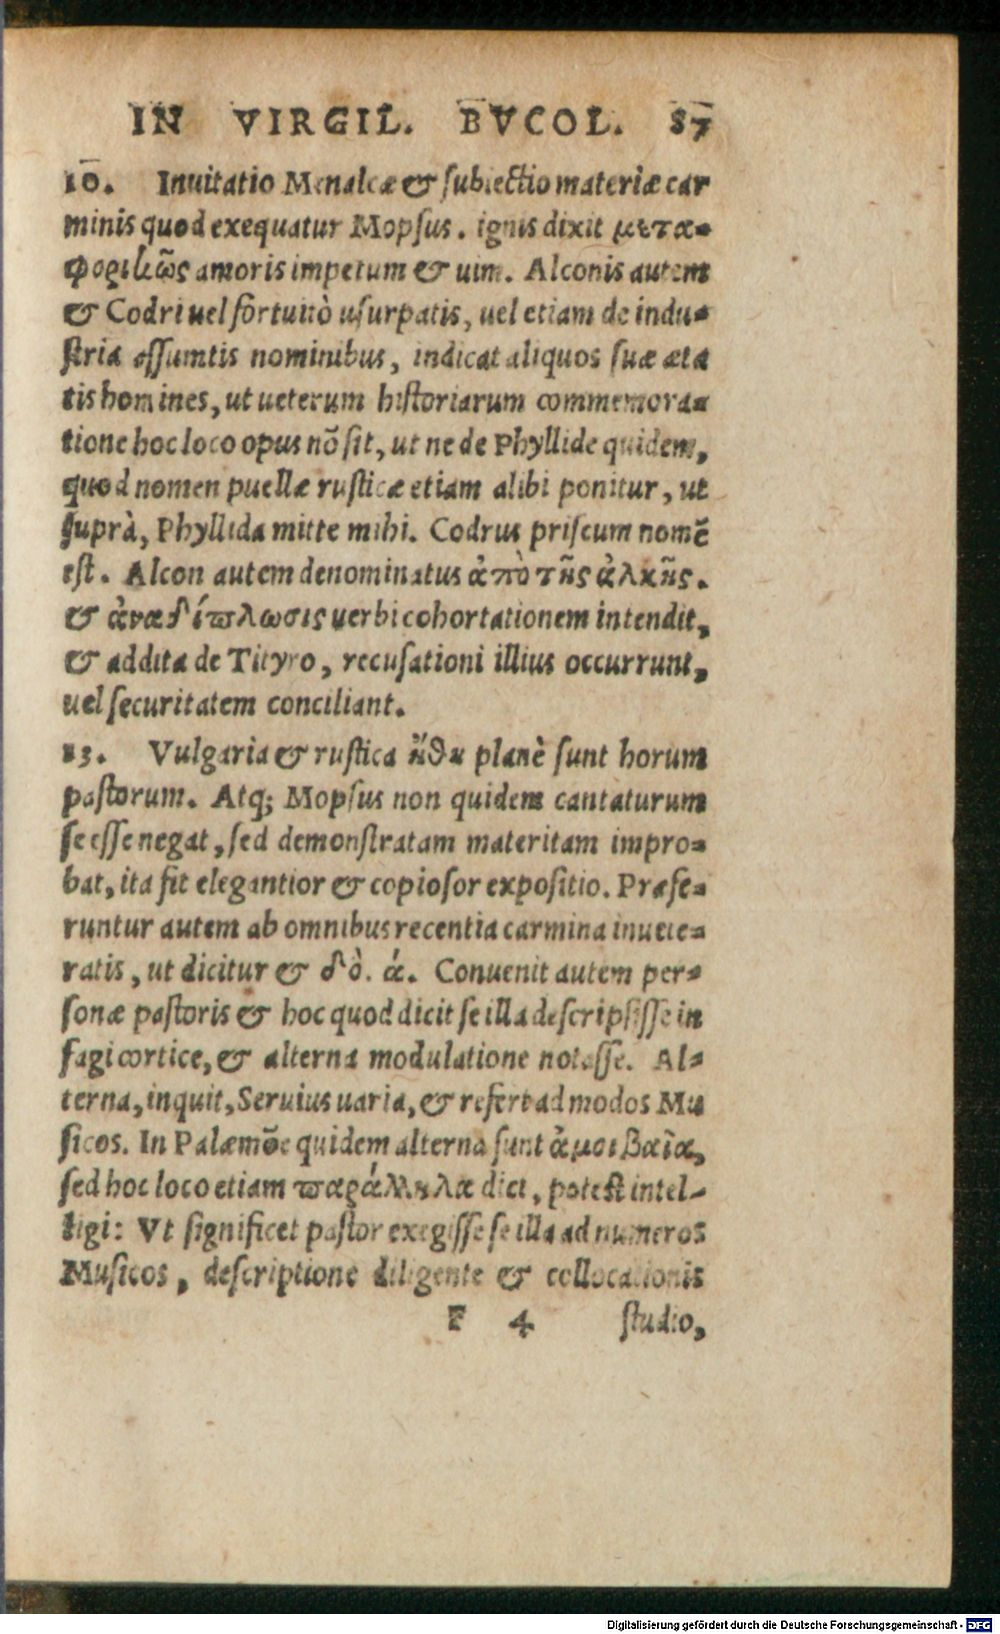 IN VIRGIL. BVCOL. 87
10. Inuitatio Menalcæ & subiectio materiæ car
minis quod exequatur Mopsus. ignis dixit μετα-
φορικῶς amoris impetum & uim. Alconis autem
& Codri uel fortuitò usurpatis, uel etiam de indu-
stria assumtis nominibus, indicat aliquos suæ æta
tis homines, ut ueterum historiarum commemora-
tione hoc loco opus nō sit, ut ne de Phyllide quidem,
quod nomen puellæ rusticæ etiam alibi ponitur, ut
suprà, Phyllida mitte mihi. Codrus priscum nomē
est. Alcon autem denominatus ἀπὸ τῆς ἀλκῆς.
& ἀναδίπλωσις uerbi cohortationem intendit,
& addita de Tityro, recusationi illius occurrunt,
uel securitatem conciliant.
13. Vulgaria & rustica ἤθη planè sunt horum
pastorum. Atq; Mopsus non quidem cantaturum
se esse negat, sed demonstratam materitam impro-
bat, ita fit elegantior & copiosor expositio. Præfe-
runtur autem ab omnibus recentia carmina inuete-
ratis, ut dicitur & δὸ. ά. Conuenit autem per-
sonæ pastoris & hoc quod dicit se illa descripsisse in
fagi cortice, & alterna modulatione notasse. Al-
terna, inquit, Seruius uaria, & refert ad modos Mu
sicos. In Palæmōe quidem alterna sunt ἀμοιβαῖα,
sed hoc loco etiam παράλληλα dici, potest intel-
ligi: Vt significet pastor exegisse se illa ad numeros
Musicos, descriptione diligente & collocationis
F 4 studio,
Digitalisierung gefördert durch die Deutsche Forschungsgemeinschaft - DFG